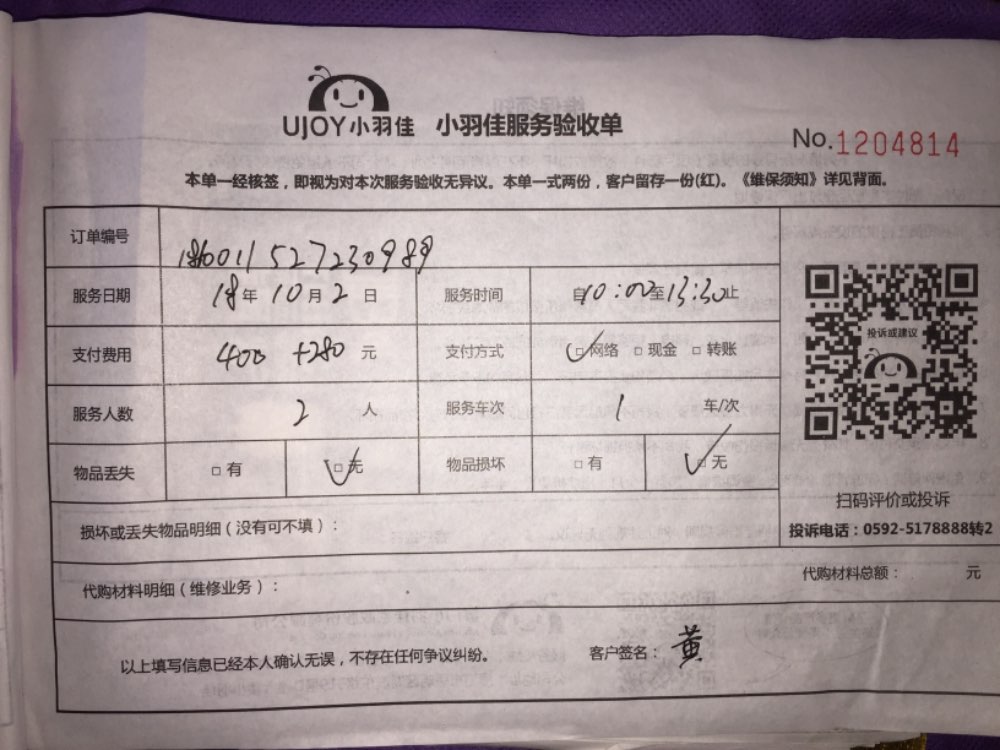 UJOY小羽佳 小羽佳服务验收单
No.1204814
本单一经核签，即视为对本次服务验收无异议。本单一式两份，客户留存一份(红)。《维保须知》详见背面。
订单编号
服务日期 18年10月2日 服务时间 自10:00至13:30止
支付费用 400 +280 元 支付方式 □网络 □现金 □转账
服务人数 2 人 服务车次 1 车/次
物品丢失 □有 □无 物品损坏 □有 □无
投诉或建议
扫码评价或投诉
投诉电话：0592-5178888转2
损坏或丢失物品明细（没有可不填）：
代购材料明细（维修业务）： 代购材料总额： 元
以上填写信息已经本人确认无误，不存在任何争议纠纷。 客户签名：黄